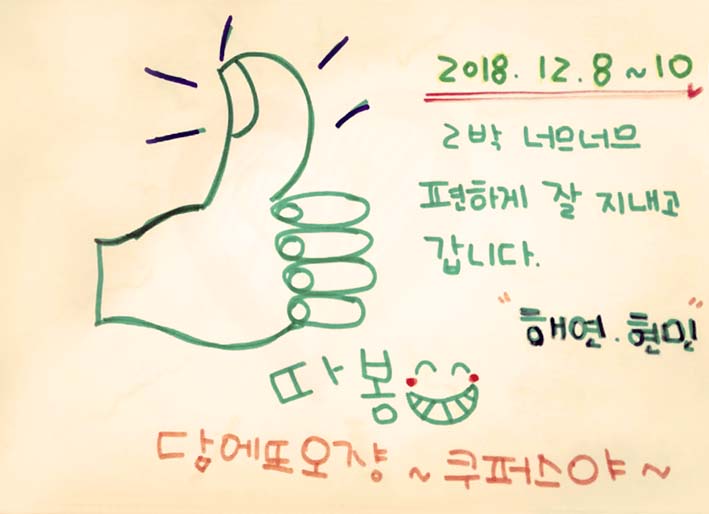 2018. 12. 8 ~ 10
2박 너므너므
편하게 잘 지내고
갑니다.
"해연. 현민"
따봉
담에또오쟝 ~ 쿠퍼스야 ~